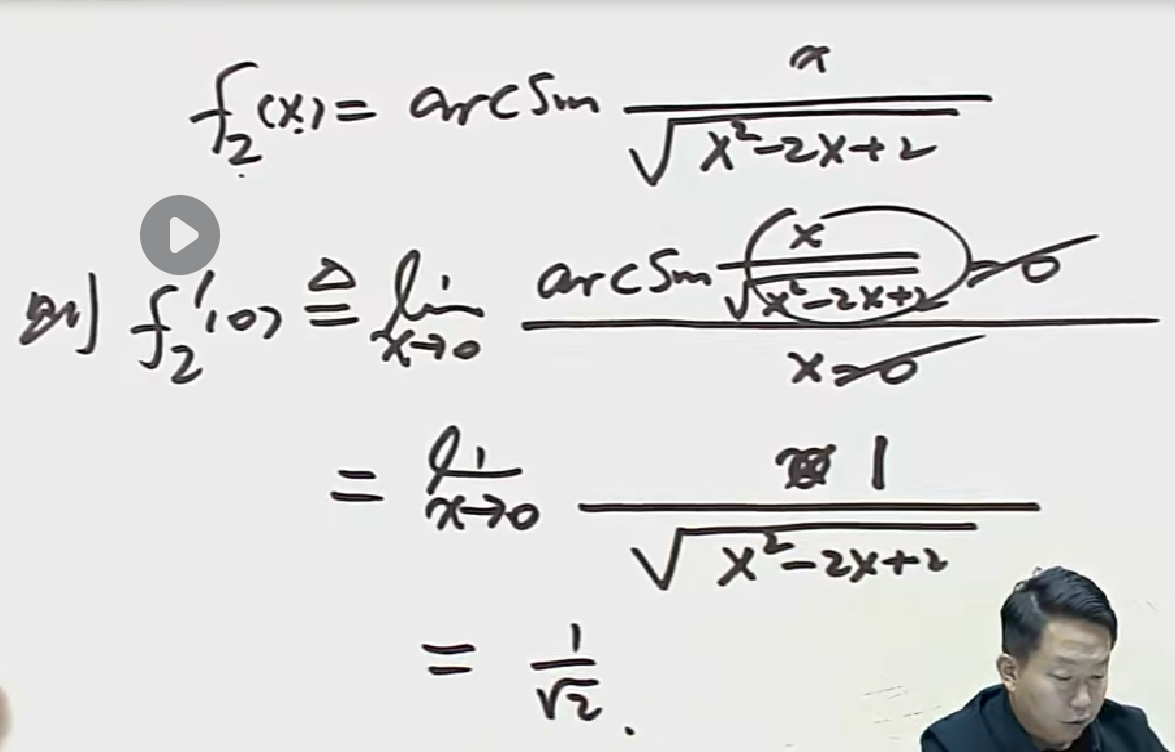 f₂(x) = arcsin x/√(x²-2x+2)
则 f₂'(0) ≜ lim_{x→0} (arcsin x/√(x²-2x+2) - 0)/(x-0)
= lim_{x→0} 1/√(x²-2x+2)
= 1/√2.